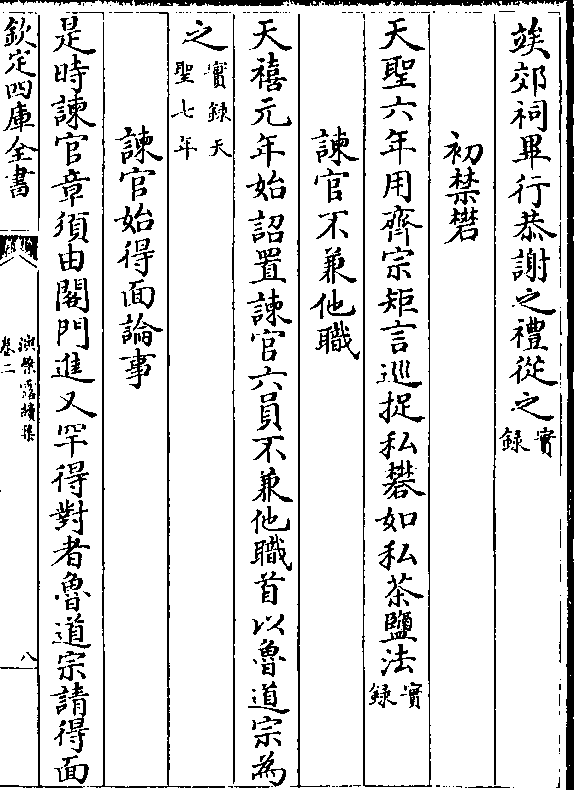 竢郊祠畢行恭謝之禮從之實錄
初禁礬
天聖六年用齊宗矩言巡捉私礬如私茶鹽法實錄
諫官不兼他職
天禧元年始詔置諫官六員不兼他職首以魯道宗為
之實錄天聖七年
諫官始得面論事
是時諫官章須由閣門進又罕得對者魯道宗請得面
欽定四庫全書
演繁露續集
卷二
八